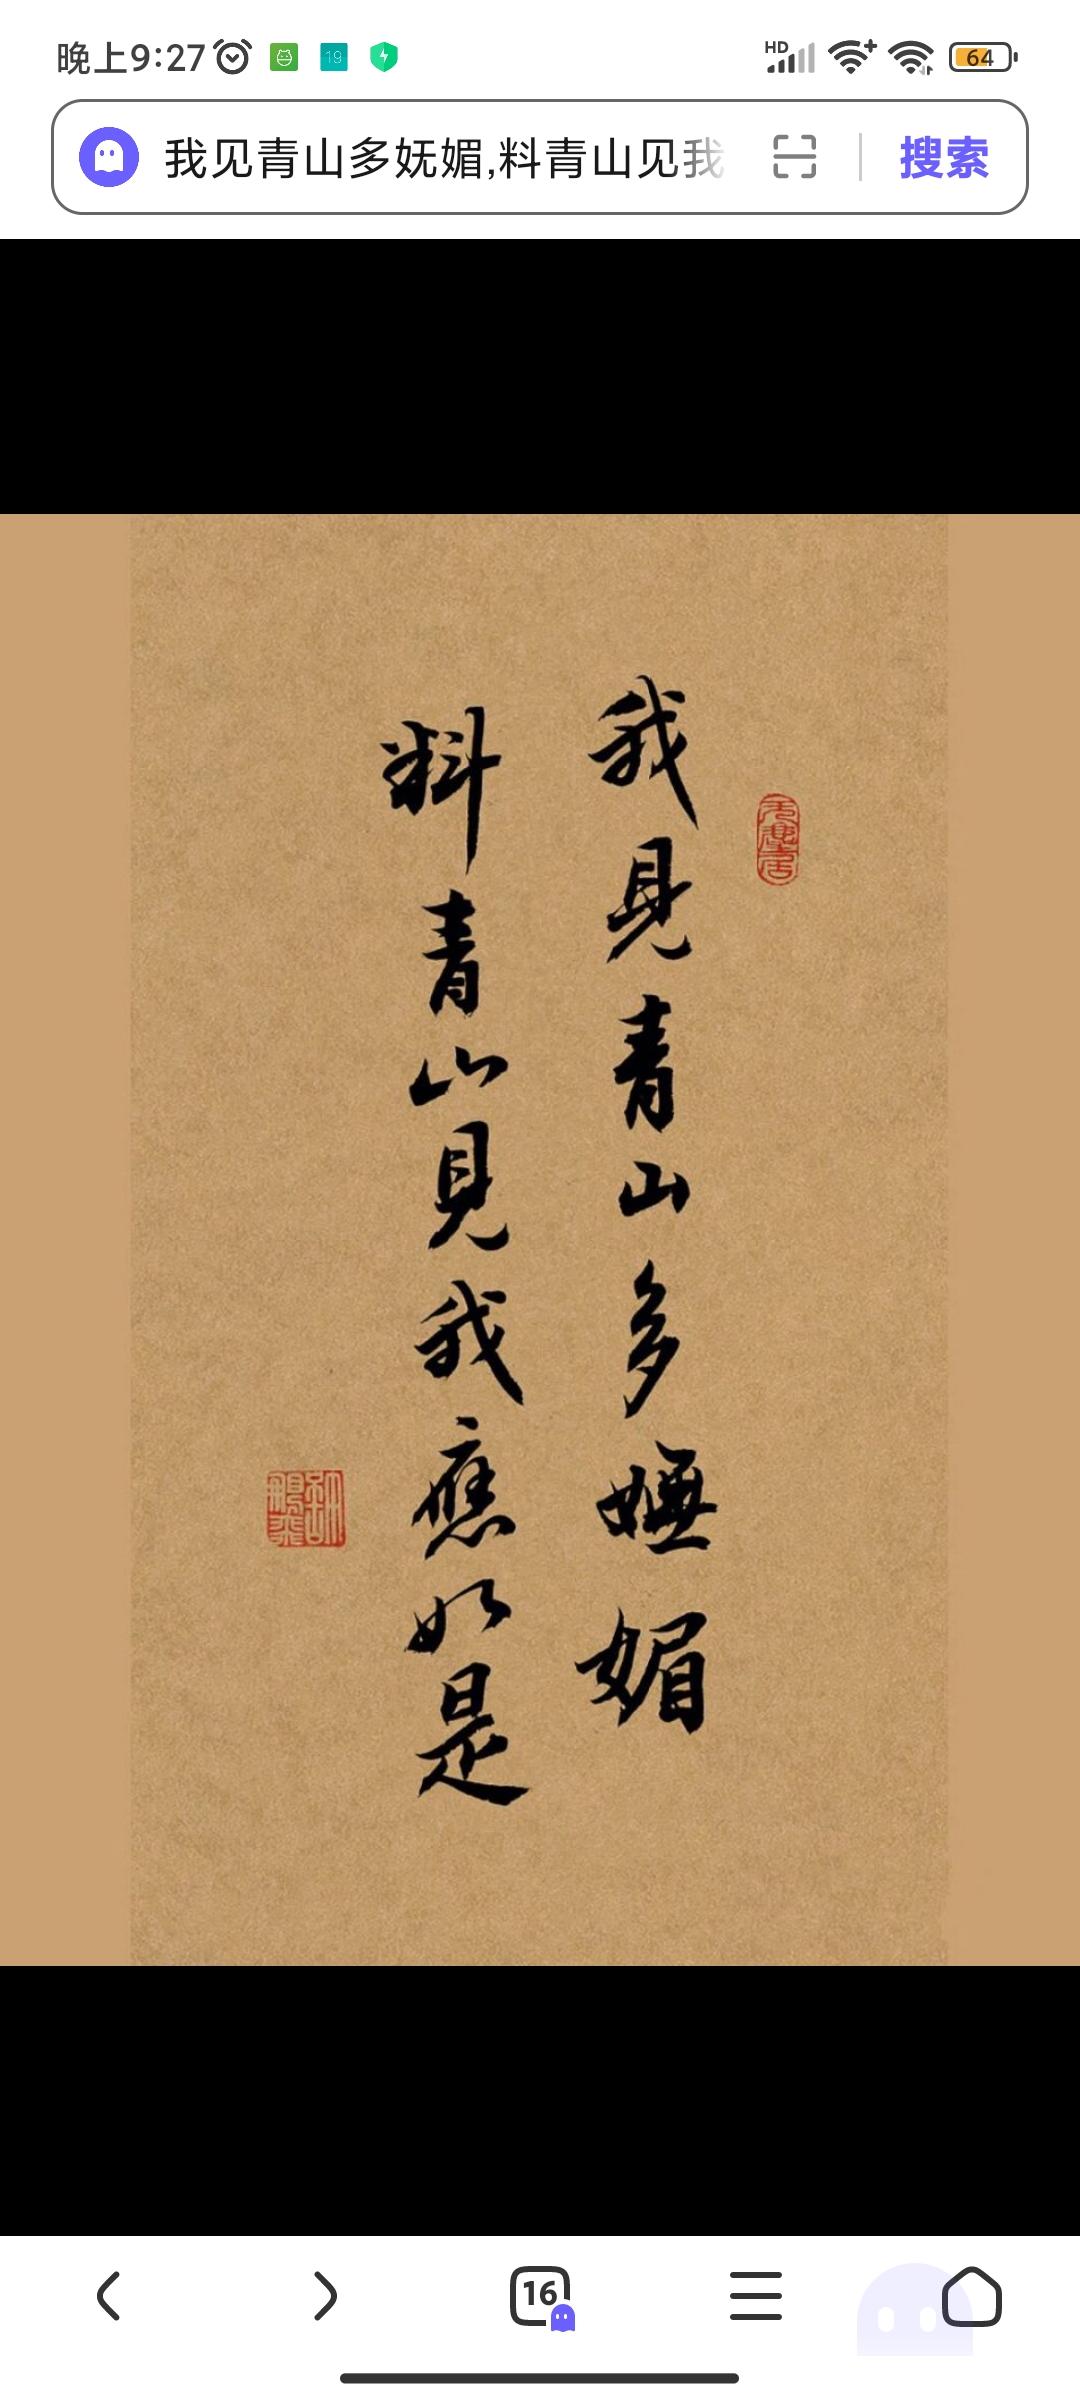 晚上9:27
19
HD
64
我见青山多妩媚,料青山见我
搜索
我見青山多嫵媚
料青山見我應如是
16